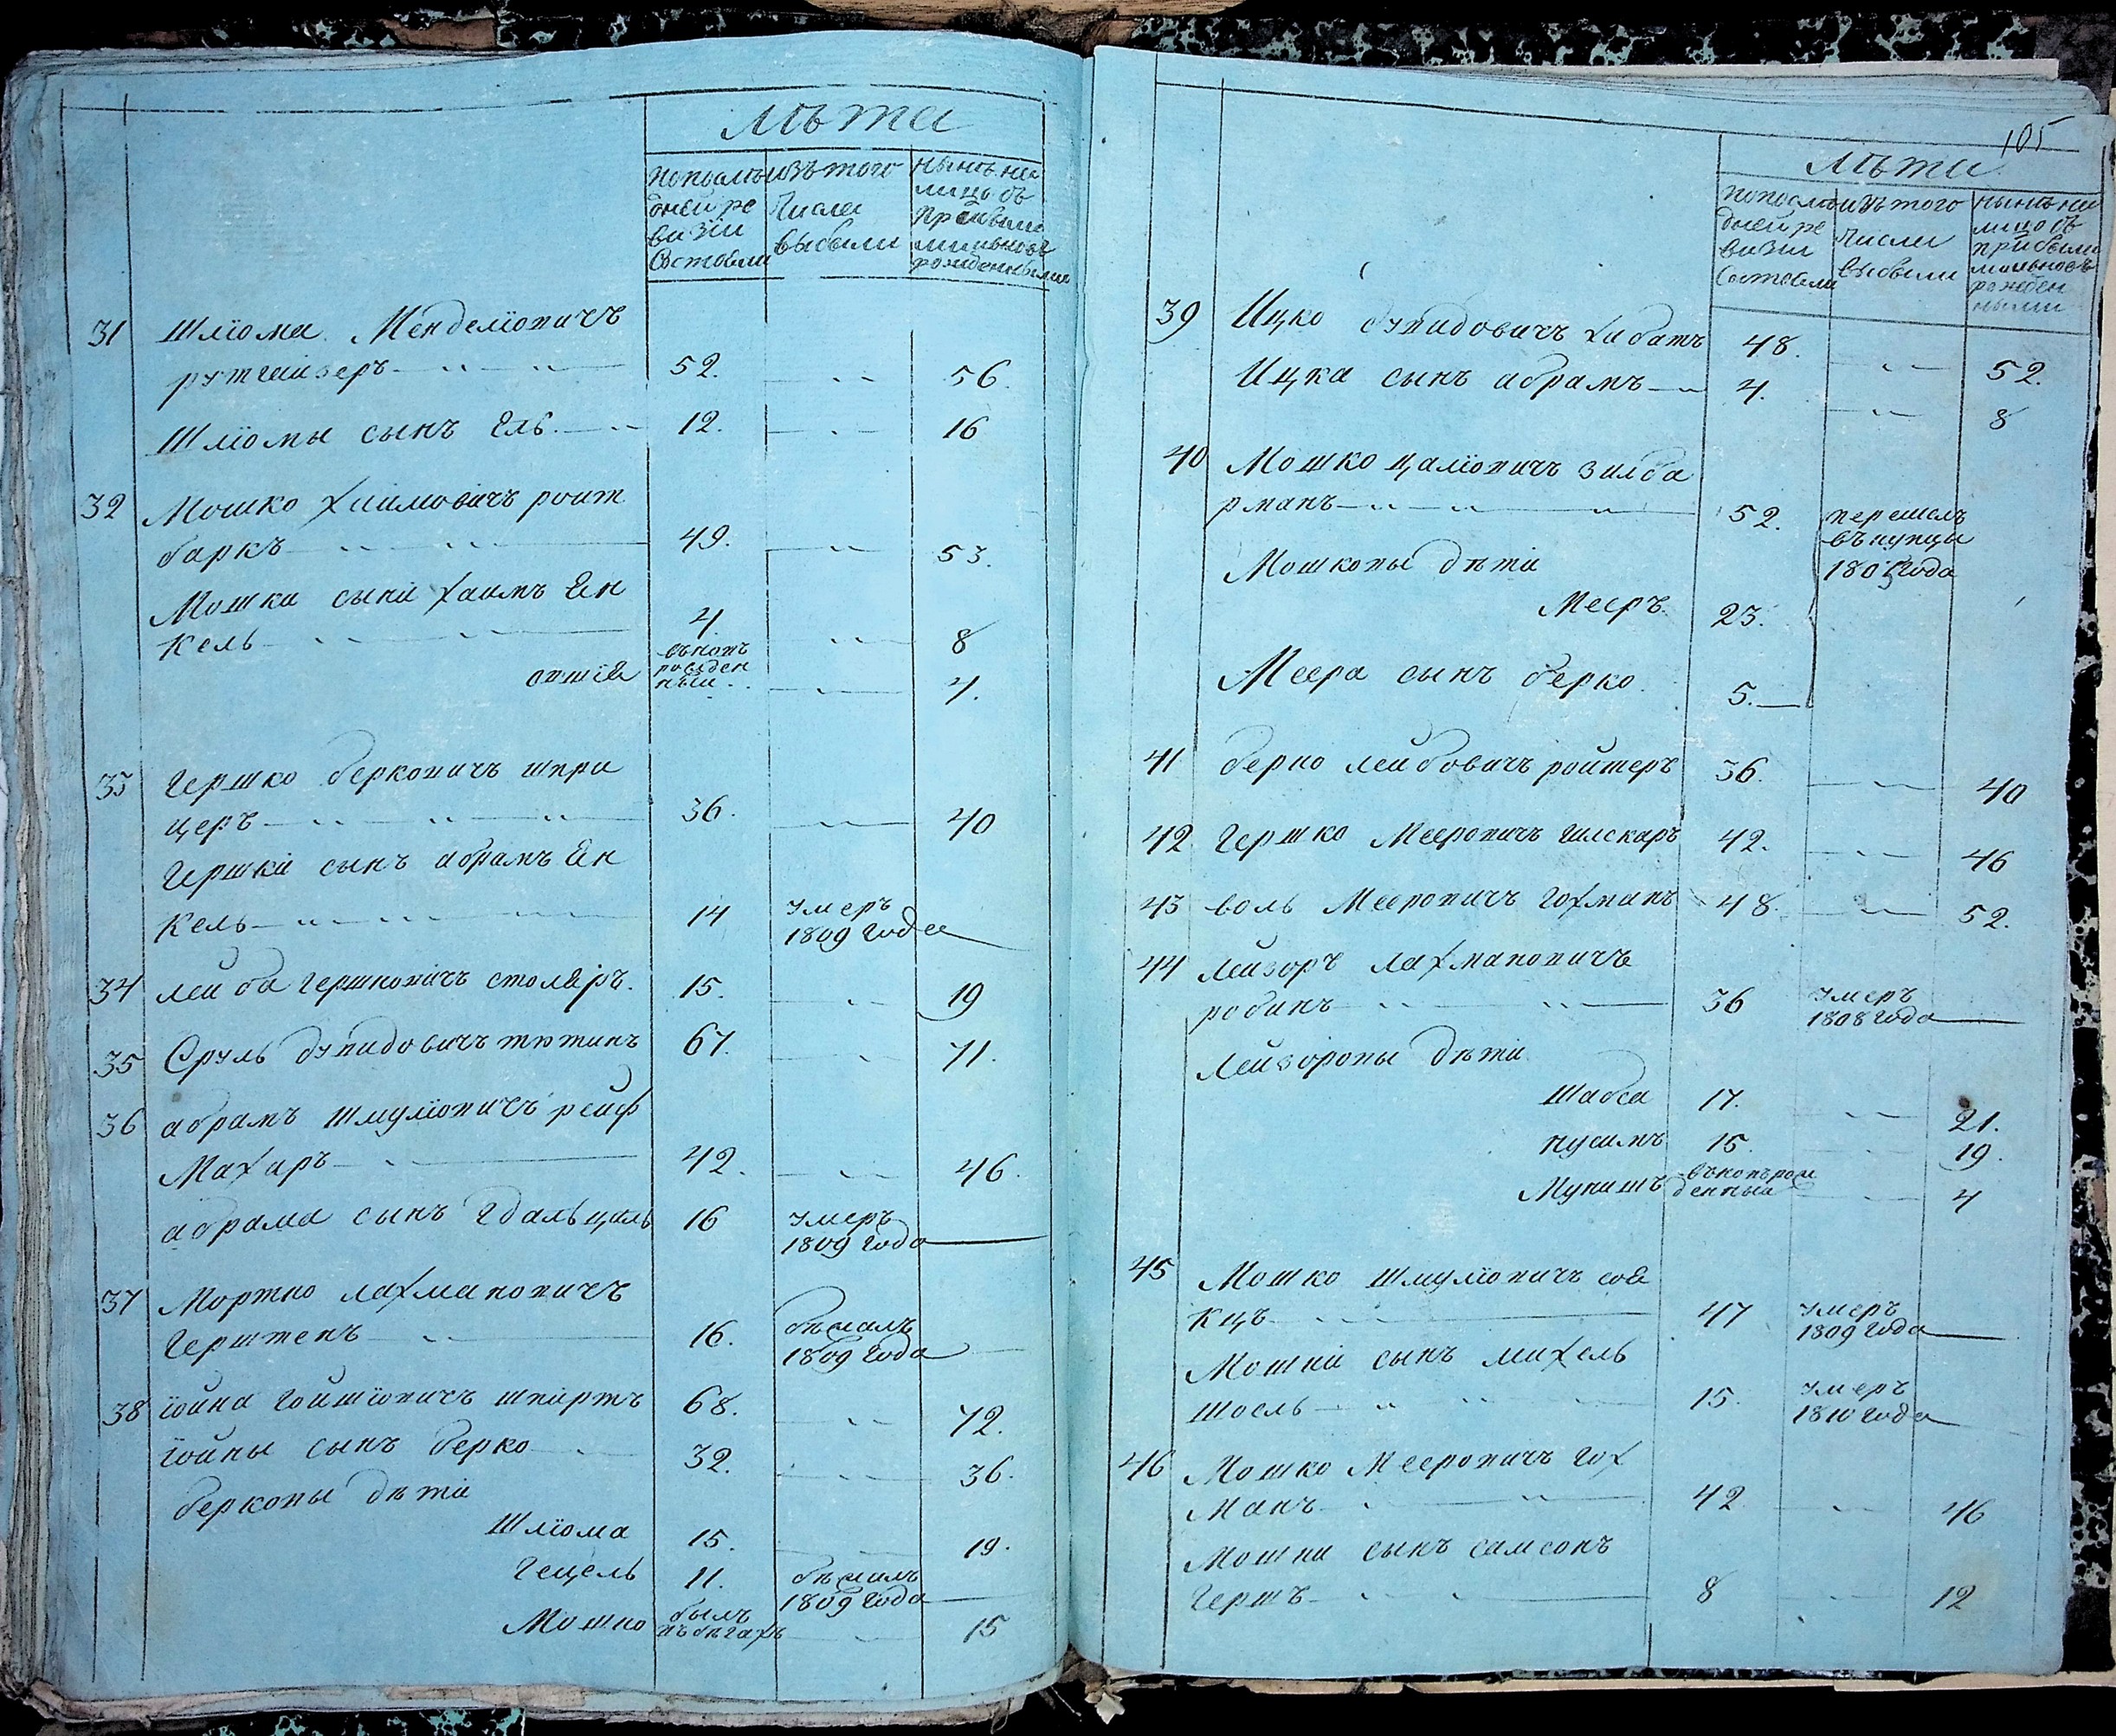 лѣта
попослѣ
дней ре
визіи
состояли
изъ того
числа
выбыли
нынѣ на
лицо съ
прибыли
ми вновь
рожденными
31 Шліома Менделіовичъ
рутгайзеръ 52. 56.
Шліомы сынъ Ель 12. 16
32 Мошко хаимовичъ роит
баркъ 49. 53.
Мошка сыны хаимъ Ян
кель 4 8
овшія вновь
рожден
ныи 4.
33 Гершко берковичъ шпри
церъ 36. 40
Гершка сынъ абрамъ Ян
кель 14 умеръ
1809 года
34 лейба гершковичъ столяръ. 15. 19
35 Сруль дувидовичъ тютинъ 67. 71.
36 абрамъ шмуліовичъ рейф
Махаръ 42. 46.
абрама сынъ гдальцаль 16 умеръ
1809 года
37 Мортко лахмановичъ
Герштенъ 16. бѣжалъ
1809 года
38 іойна гойшіовичъ шпиртъ 68. 72.
іойны сынъ берко 32. 36.
берковы дѣти
Шліома 15. 19.
Гецель 11. бѣжалъ
1809 года
Мошко былъ
въ бѣгахъ 15
105
лѣта
попослѣ
дней ре
визіи
состояли
изъ того
числа
выбыли
нынѣ на
лицо съ
прибылы
ми вновь
рожден
ными
39 Ицко дувидовичъ хабатъ 48. 52.
Ицка сынъ абрамъ 4. 8
40 Мошко цаліовичъ зилбе
рманъ 52. перешелъ
въ купцы
1805 года
Мошковы дѣти
Мееръ. 23.
Меера сынъ берко 5.
41 берко лейбовичъ ройтеръ 36. 40
42 Гершко Мееровичъ гилскаръ 42. 46
43 воль Мееровичъ гохманъ 48. 52.
44 лейзоръ лахмановичъ
робинъ 36 умеръ
1808 года
Лейзоровы дѣти
Шабса 17. 21.
нусимъ 15. 19.
Мунишъ вновь рож
денныи 4
45 Мошко шмуліовичъ соя
кцъ 47 умеръ
1809 года
Мошки сынъ михель
шоель 15. умеръ
1810 года
46 Мошко Мееровичъ гох
Манъ 42 46
Мошки сынъ самсонъ
Гершъ 8 12